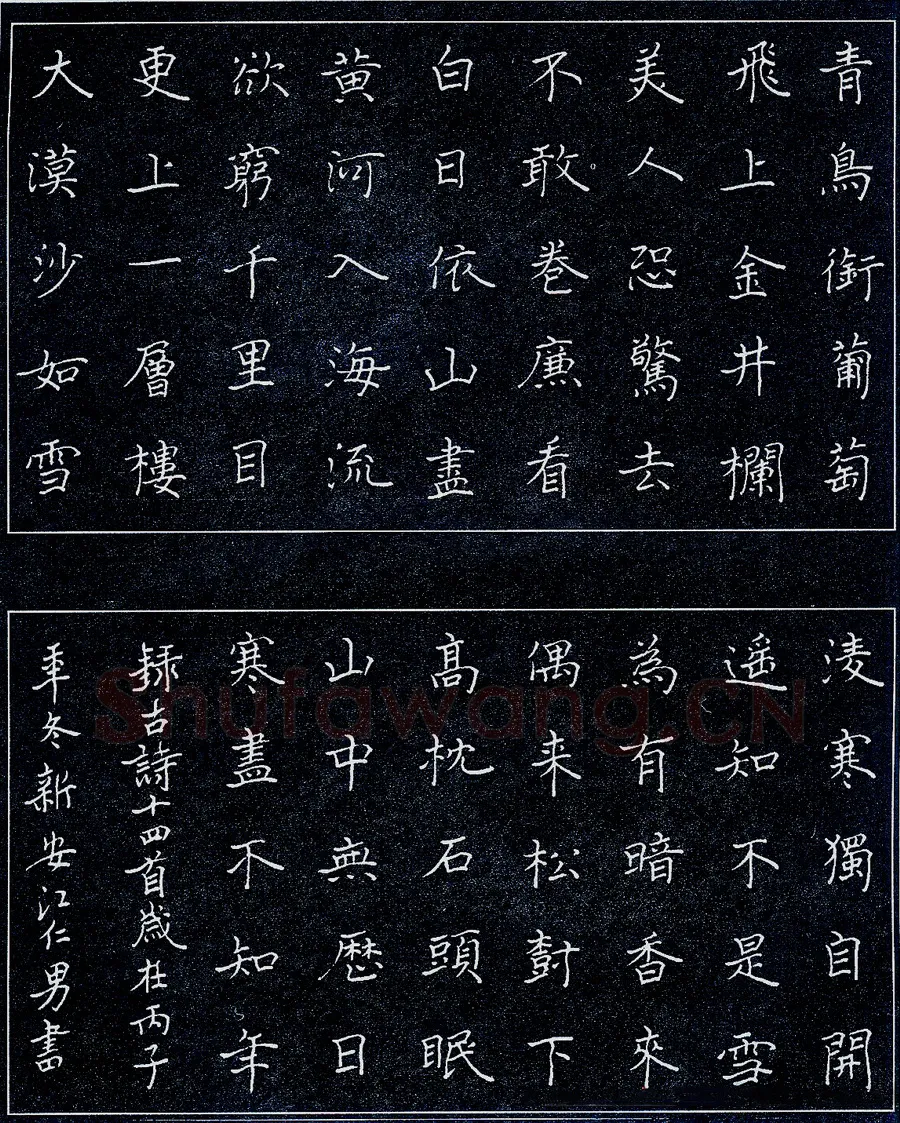 青鳥銜葡萄
飛上金井欄
美人恐驚去
不敢卷廉看
白日依山盡
黃河入海流
欲窮千里目
更上一層樓
大漠沙如雪
淩寒獨自開
遥知不是雪
為有暗香來
偶来松尌下
高枕石頭眠
山中無曆日
寒盡不知年
録古詩十四首歲在丙子
年冬新安江仁男書
Shufawang.CN